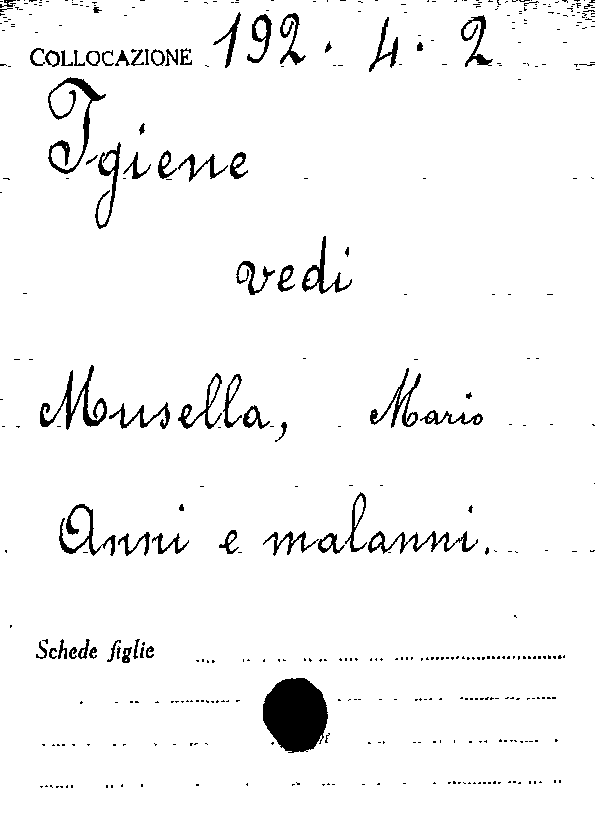 COLLOCAZIONE 192. 4. 2
Igiene
vedi
Musella, Mario
Anni e malanni.
Schede figlie